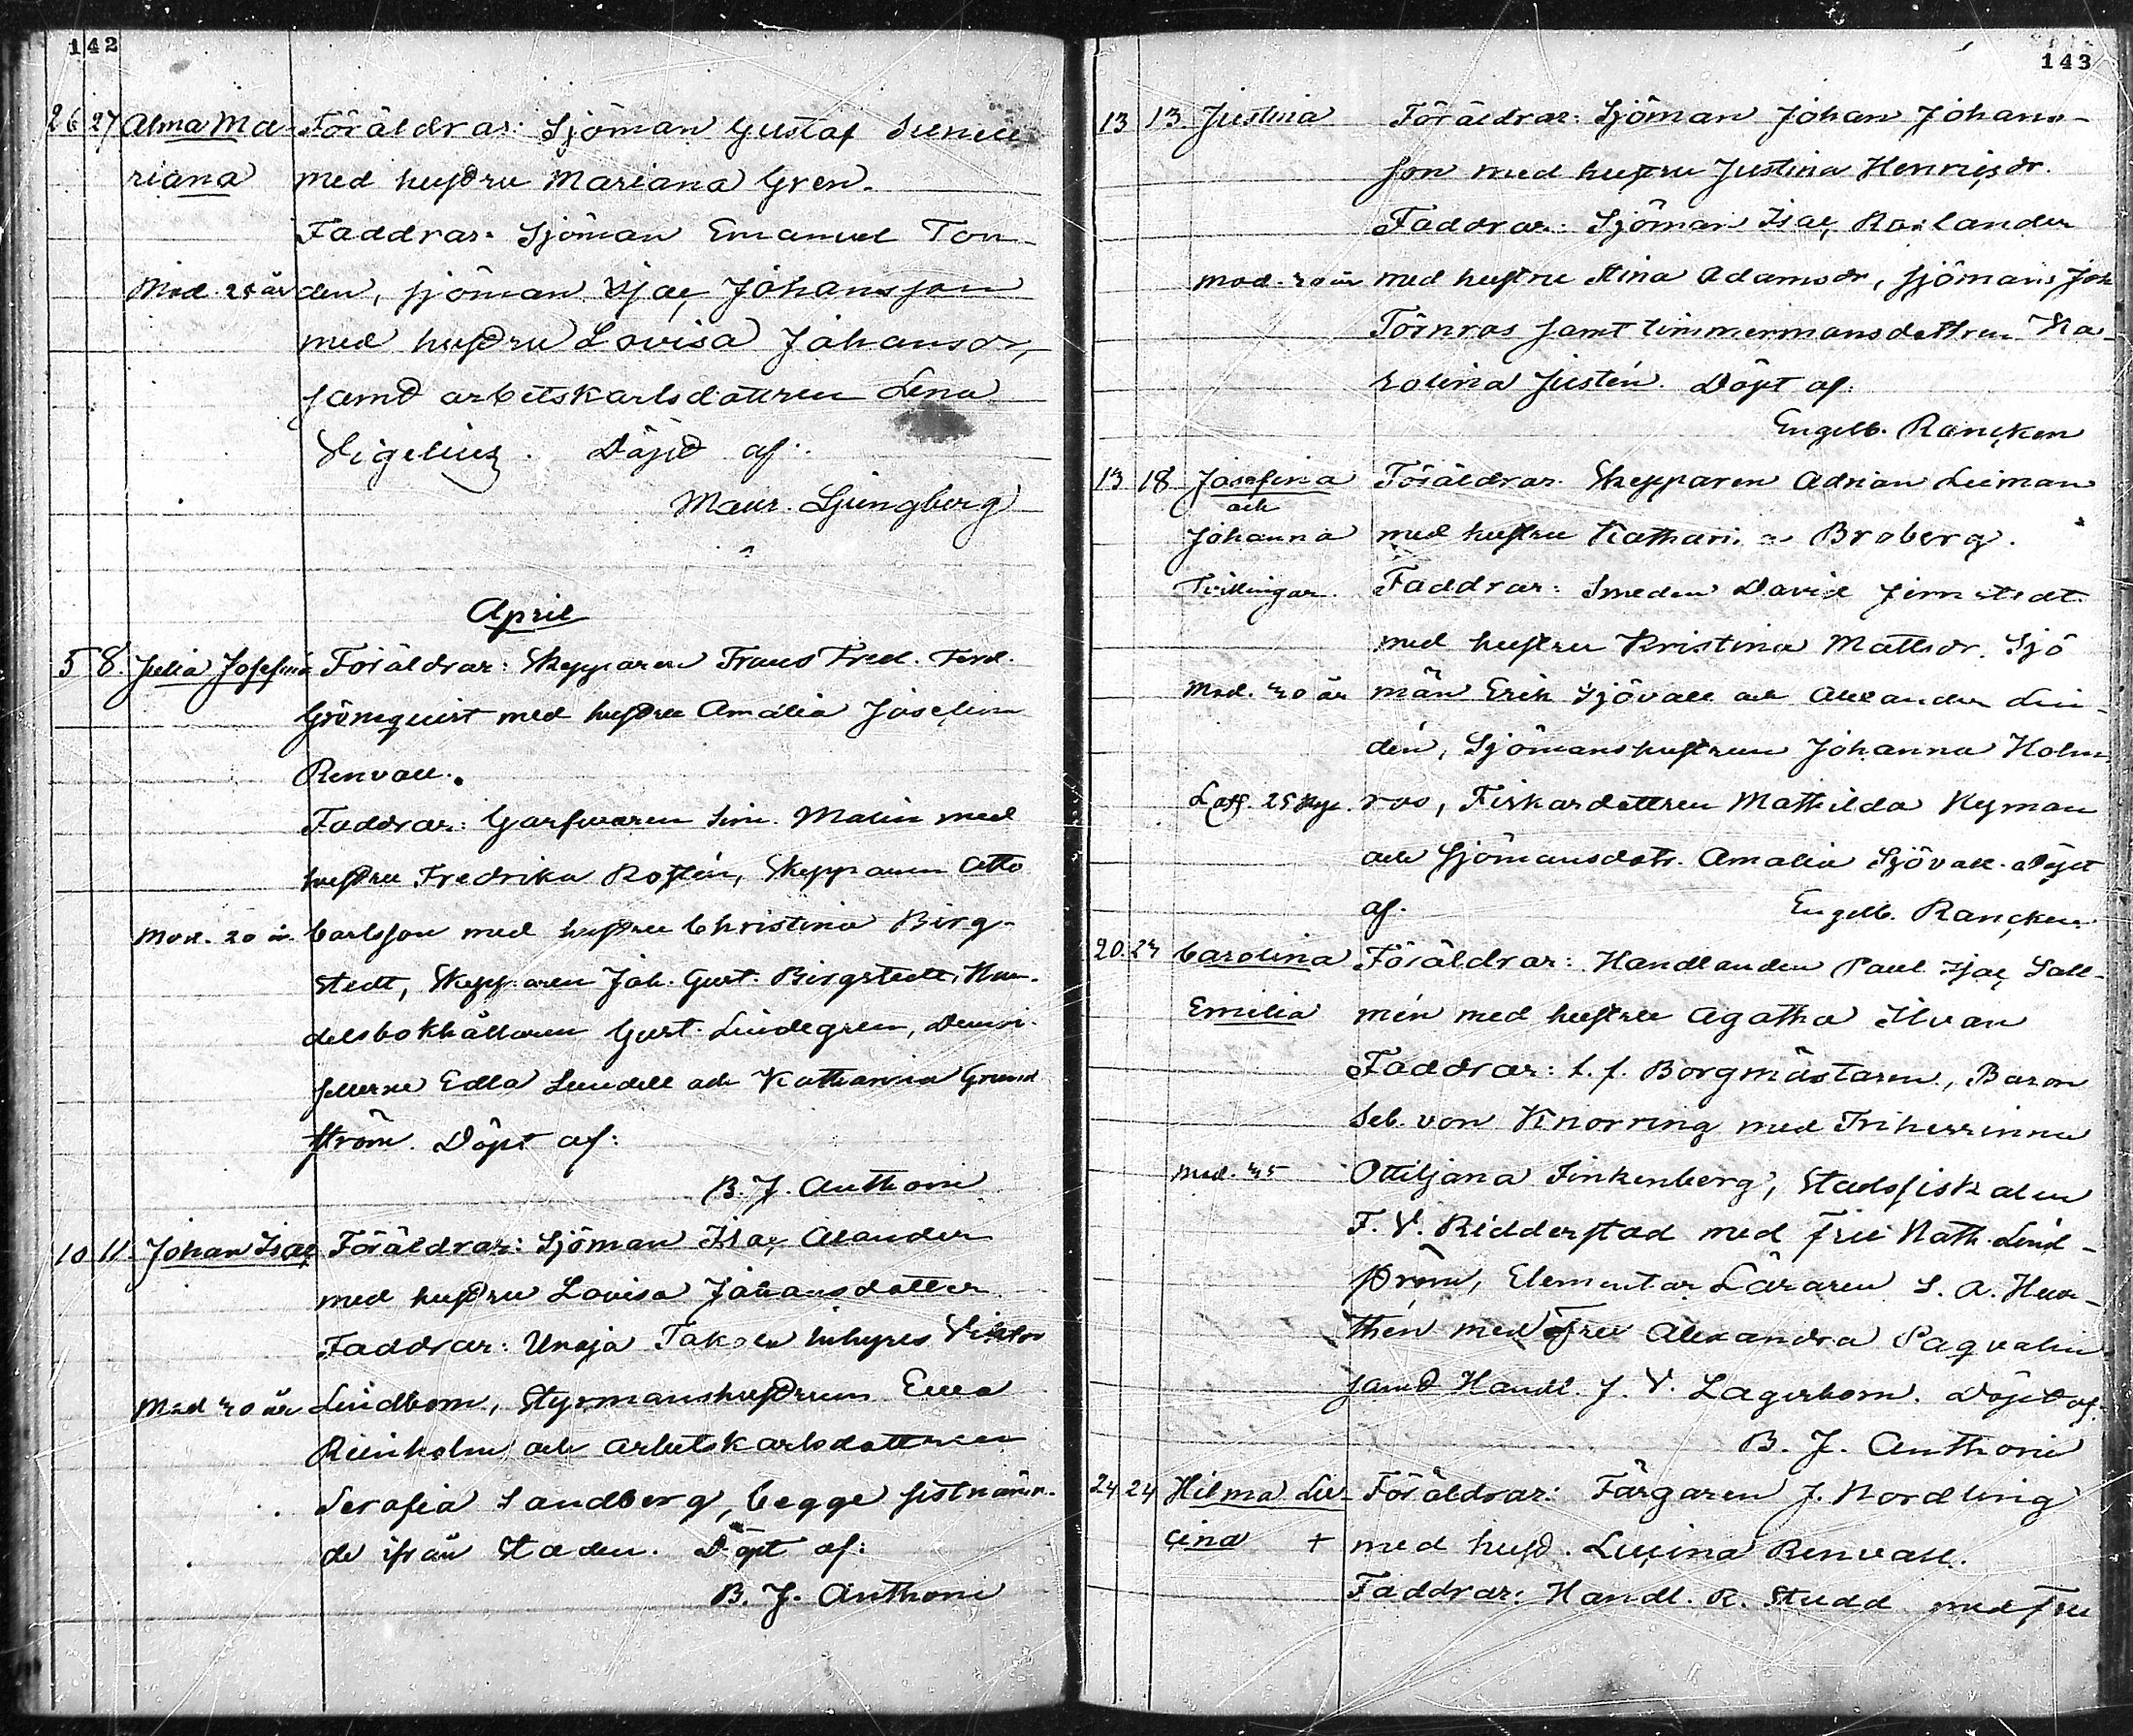 142
26 27 Alma Ma- Föräldrar: Sjöman Gustaf
riana med hustru Mariana Gren.
Faddrar: Sjöman Emanuel Ton-
Mod. 25 år den, sjöman Isac Johansson
med hustru Lovisa Johansdr,
samt arbetskarlsdottren Lena
Sigelius. Döpt af:
Maur. Ljungberg
April
5 8. Julia Josefina Föräldrar: Skepparen Frans Fred. Ferd.
Grönquist med hustru Amalia Joselin
Renvall.
Faddrar: Garfvaren Sim. Malin med
hustru Fredrika Rostén, Skepparen Otto
Mod. 20 år. Carlsson med hustru Christina Birg-
stedt, Skepparen Joh. Gust. Birgstedt, Han-
delsbokhållaren Gust. Lindegren, Demoi-
sellerne Edla Lundell och Katharina Grund
ström. Döpt af:
B. J. Anthoni
10 11. Johan Isac Föräldrar: Sjöman Isac Alander
med hustru Lovisa Johansdotter
Faddrar: Unaja Inhyses Viktor
Mod 30 år Lindbom, Styrmanshustrun Eva
Reinholm och arbetskarlsdottren
Serafia Sandberg, begge sistnämn-
de ifrån Staden. Döpt af:
B. J. Anthoni
143
13 13. Justina Föräldrar: Sjöman Johan Johans-
son med hustru Justina Henricsdr.
Faddrar: Sjöman Isac Roslander
Mod. 30 år med hustru Stina Adamsdr, sjöman Joh
Törnros samt timmermansdottren Ka-
rolina Justén. Döpt af:
Engelb. Rancken
13 18 Josefina Föräldrar. Skepparen Adrian Leiman
och
Johanna med hustru Katharina Broberg.
Tvillingar. Faddrar: Smeden David Jernstedt
med hustru Kristina Mattsdr. Sjö
Mod. 30 år män Erik Sjövall och Alexander Lin-
dén, Sjömanshustrun Johanna Holm-
Laff. 25 Kyr. roos, Fiskardottren Mathilda Nyman
och Sjömansdotr. Amalia Sjövall. Döpt
af. Engelb. Rancken.
20. 23 Carolina Föräldrar: Handlanden Paul Isac Sall-
Emilia mén med hustru Agatha Ilvan
Faddrar: t. f. Borgmästaren, Baron
Seb. von Knorring med Friherrinna
Mod. 35 Ottiljana Finkenberg, Stadsfiskalen
F. V. Ridderstad med fru Nath. Lind-
ström, Elementar Läraren S. A. Heur-
thén med Fru Alexandra Paqvalin
samt Handl. J. V. Lagerbom. Döpt af:
B. J. Anthoni
24 24 Hilma Lu- Föräldrar: Färgaren J. Nordling
cina + med hust. Lucina Renvall.
Faddrar: Handl. R. Studd med Fru